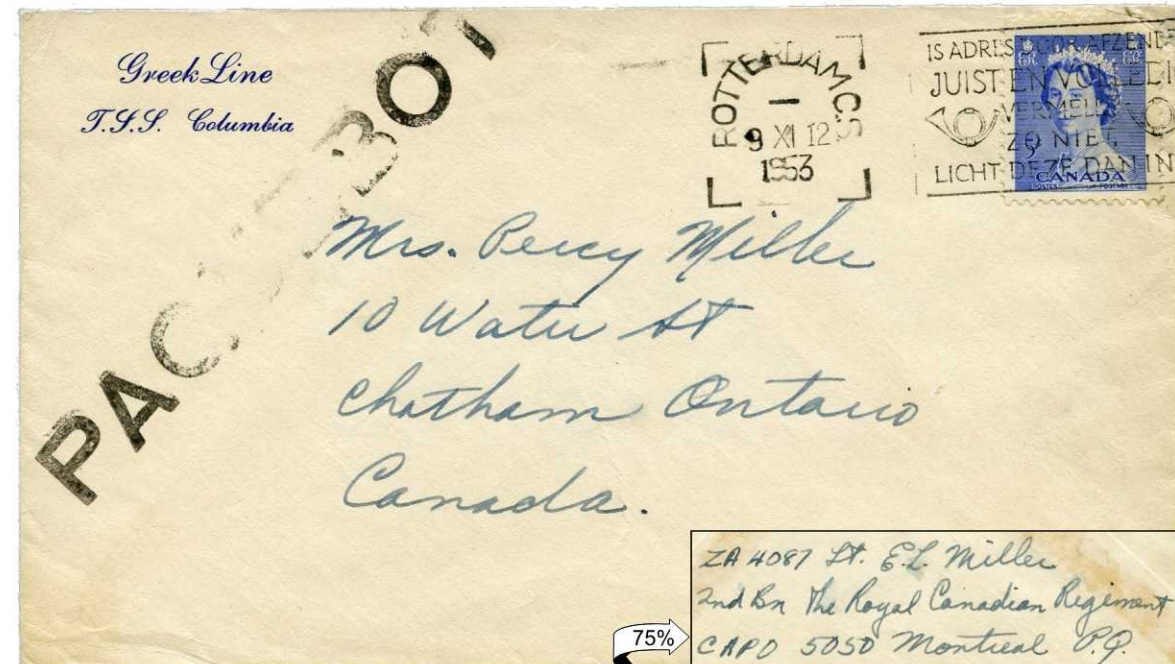 Greek Line
T.S.S. Columbia
PAC BOT
ROTTERDAM C.S
9 XI 12
1953
IS ADRES AFZENDE
JUIST EN VOLLEDI
VERMELD
ZO NIET,
LICHT DEZE DAN IN
CANADA
POSTES POSTAGE
Mrs. Percy Miller
10 Water St
Chatham Ontario
Canada.
ZA 4087 Lt. E.L. Miller
2nd Bn The Royal Canadian Regiment
CAPO 5050 Montreal P.Q.
75%